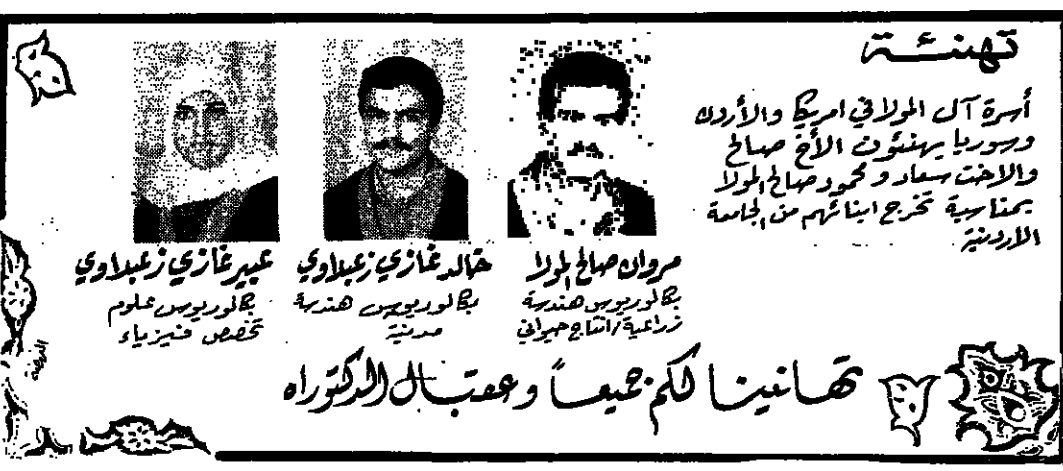 تهنئة
أسرة آل المولا في امريكا والأردن
وسوريا يهنئون الأخ صالح
والاخت سعاد و محمود صالح المولا
بمناسبة تخرج ابنائهم من الجامعة
الأردنية
مروان صالح المولا
بكالوريوس هندسة
زراعية / انتاج حيواني
خالد غازي زعبلاوي
بكالوريوس هندسة
مدنية
عبير غازي زعبلاوي
بكالوريوس علوم
تخصص فيزياء
تهانينا لكم جميعاً وعقبال الدكتوراه